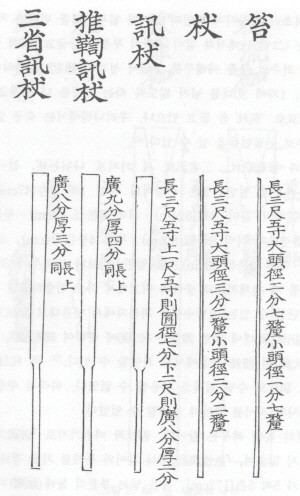 笞
長三尺五寸大頭徑二分七釐小頭徑一分七釐
杖
長三尺五寸大頭徑三分二釐小頭徑二分二釐
訊杖
長三尺五寸上一尺五寸則圓徑七分下二尺則廣八分厚二分
推鞫訊杖
廣九分厚四分長上同
三省訊杖
廣八分厚三分長上同